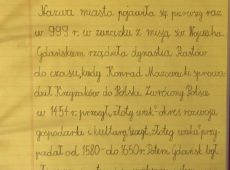 Nazwa miasta pojawiła się pierwszy raz
w 999 r. w związku z misją św. Wojciecha.
Gdańskiem rządziła dynastia Piastów
do czasu, kiedy Konrad Mazowiecki sprowa-
dził Krzyżaków do Polski. Zwrócony Polsce
w 1454 r. przeżył „złoty wiek" okres rozwoju
gospodarki i kultury
padał od 1580 do 1650 r. Potem Gdańsk był